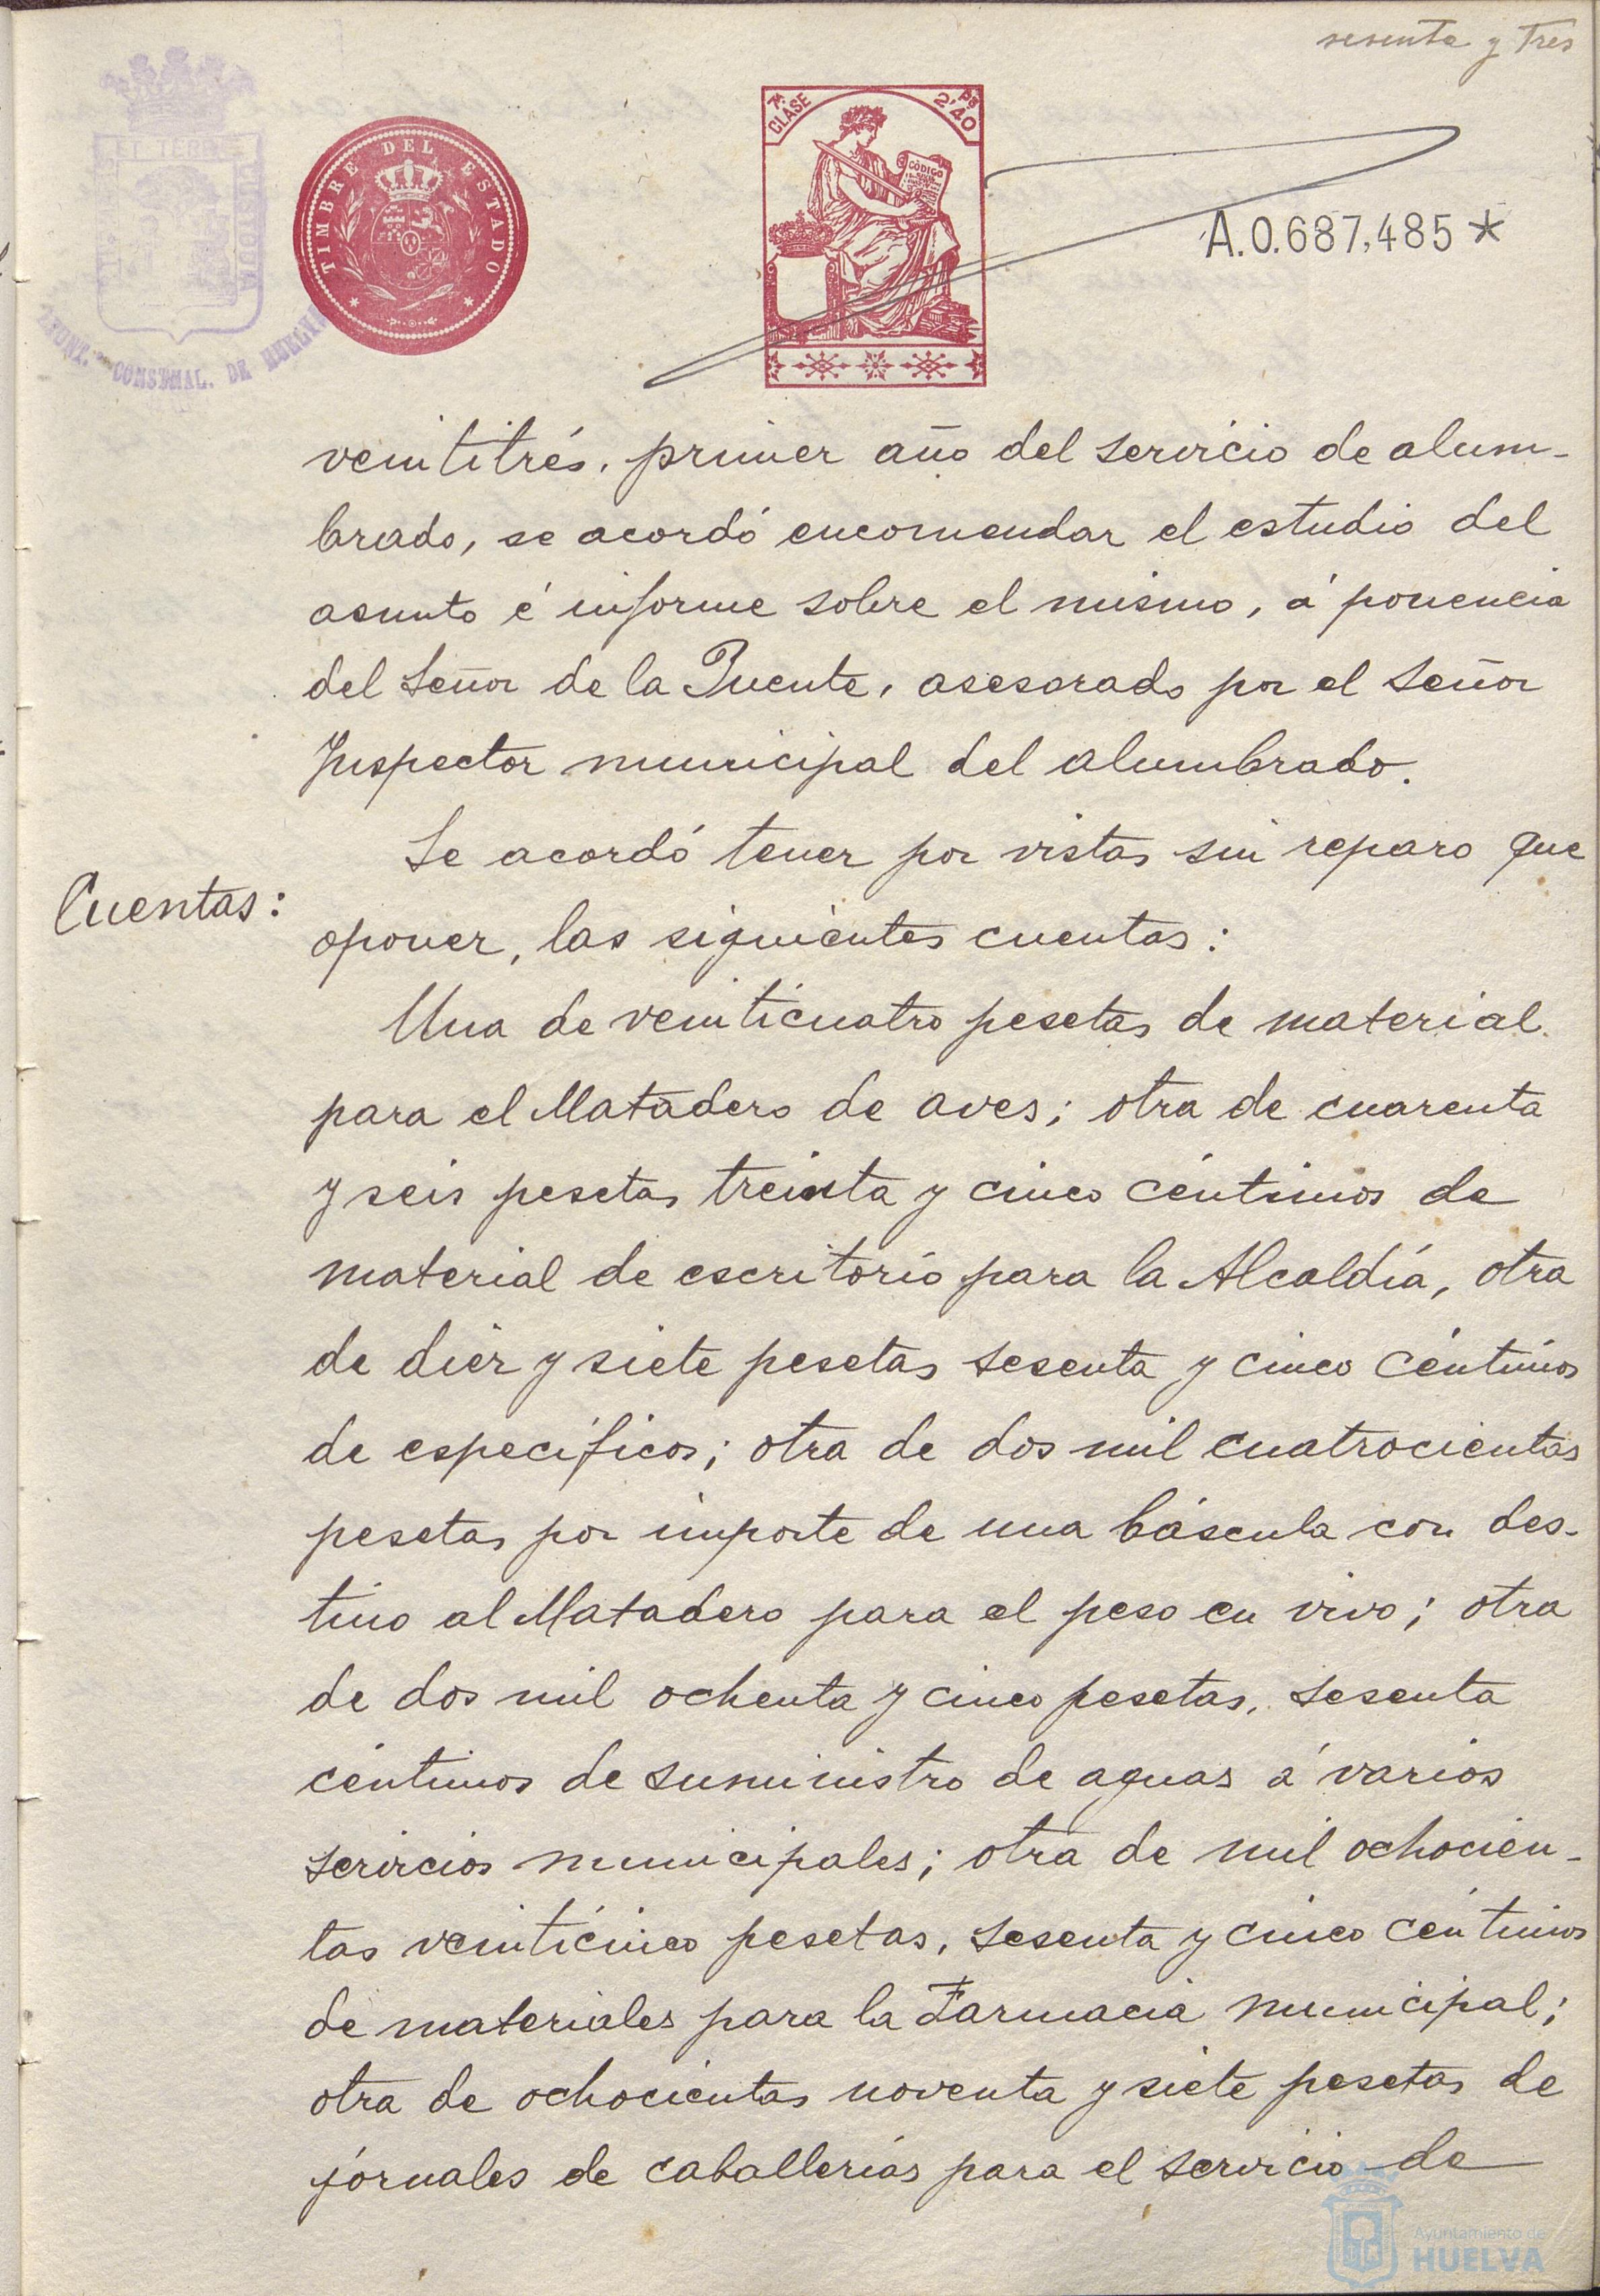 sesenta y tres
7ª CLASE
Ps 2'40
CÓDIGO
TIMBRE DEL ESTADO
AYUNT. CONSTNAL. DE HUELVA
A.0.687,485*
veintitrés, primer año del servicio de alum-
brado, se acordó encomendar el estudio del
asunto é informe sobre el mismo, á ponencia
del Señor de la Puente, asesorado por el Señor
Inspector municipal del alumbrado.
Se acordó tener por vistas sin reparo que
Cuentas:
oponer, las siguientes cuentas:
Una de veinticuatro pesetas de material
para el Matadero de aves; otra de cuarenta
y seis pesetas treinta y cinco céntimos de
material de escritorio para la Alcaldía, otra
de diez y siete pesetas sesenta y cinco céntimos
de específicos; otra de dos mil cuatrocientas
pesetas por importe de una báscula con des-
tino al Matadero para el peso en vivo; otra
de dos mil ochenta y cinco pesetas, sesenta
céntimos de suministro de aguas á varios
servicios municipales; otra de mil ochocien-
tas veinticinco pesetas, sesenta y cinco céntimos
de materiales para la Farmacia municipal;
otra de ochocientas noventa y siete pesetas de
jornales de caballerías para el servicio de
Ayuntamiento de
HUELVA